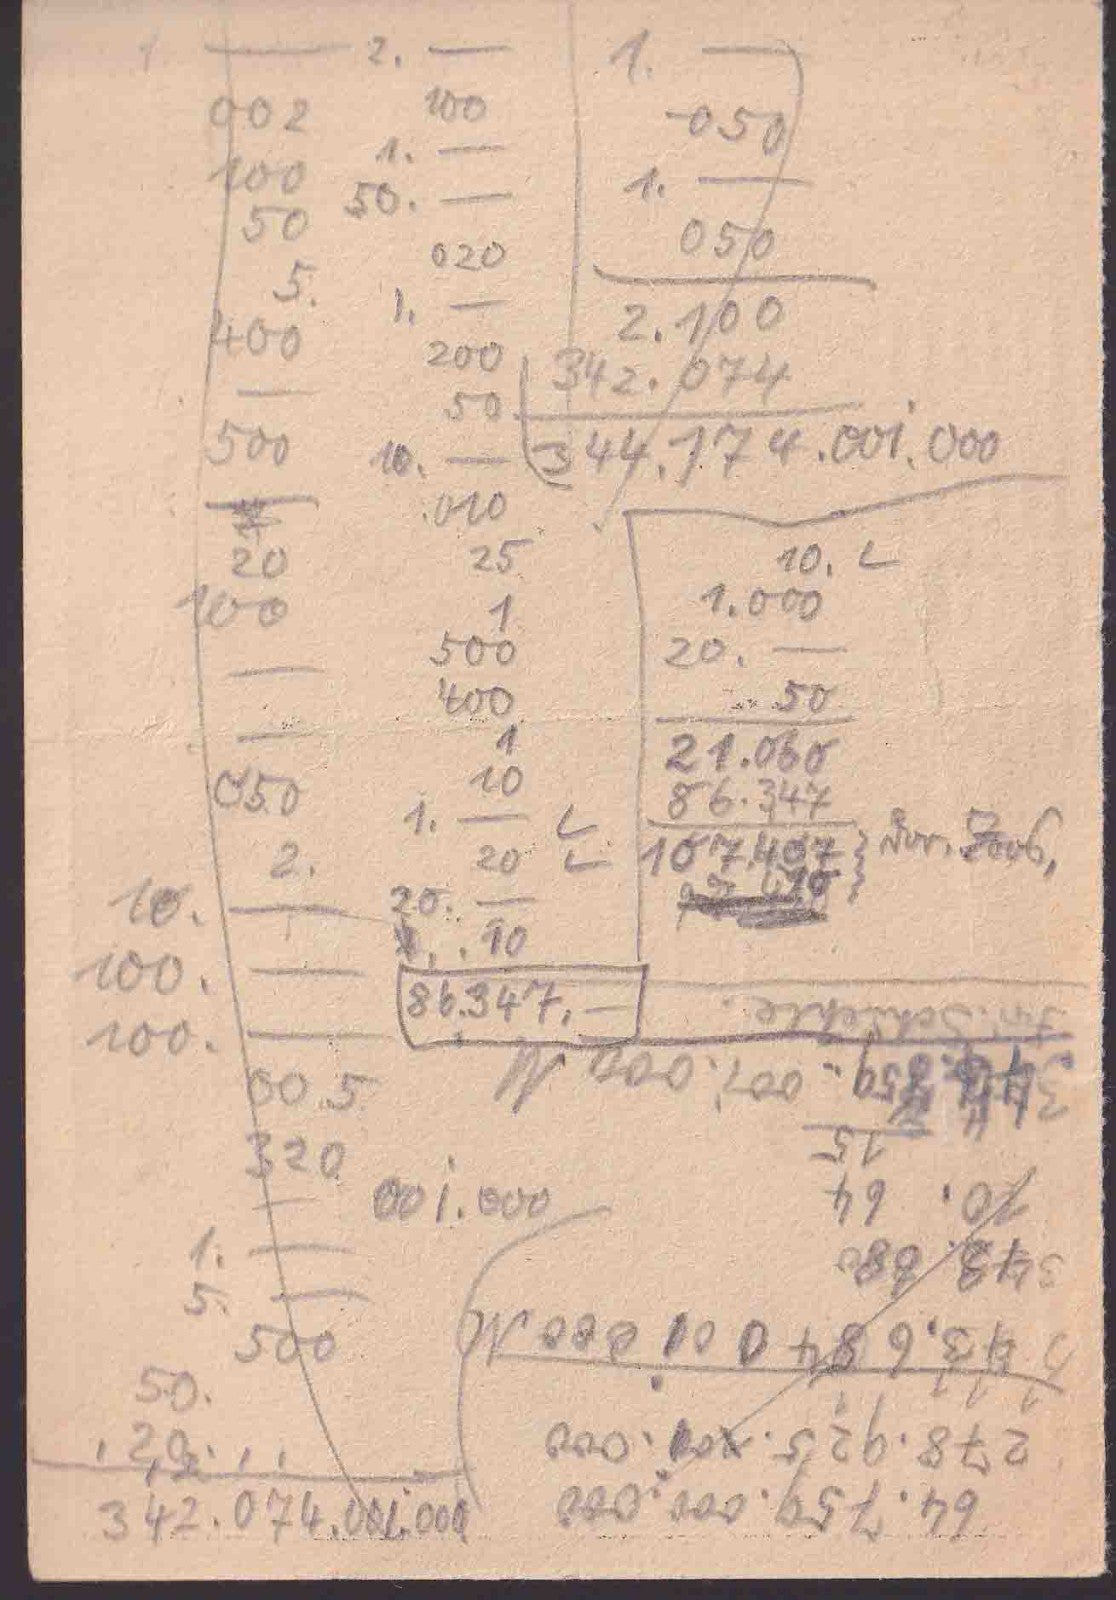 1 —
002
100
50
5.
400
—
500
—
20
100
—
—
050
2.
10. —
100. —
100. —
00.5
320
—
1. —
5. —
500
50.
20.
342.074.001.000
2. —
100
1. —
50. —
020
1. —
200
50
10. —
.010
25
1
500
400
1
10
1. —
20
20. —
10
86.347.—
001.000
1. —
050
1. —
050
2.100
342.074
344.174.001.000
10.
1.000
20. —
50
21.060
86.347
107.407
64.759.000.000
278.925.001.000
343,684 001 000 M
343.680
10. 64
15
759.001.000 M
für Schüchle.